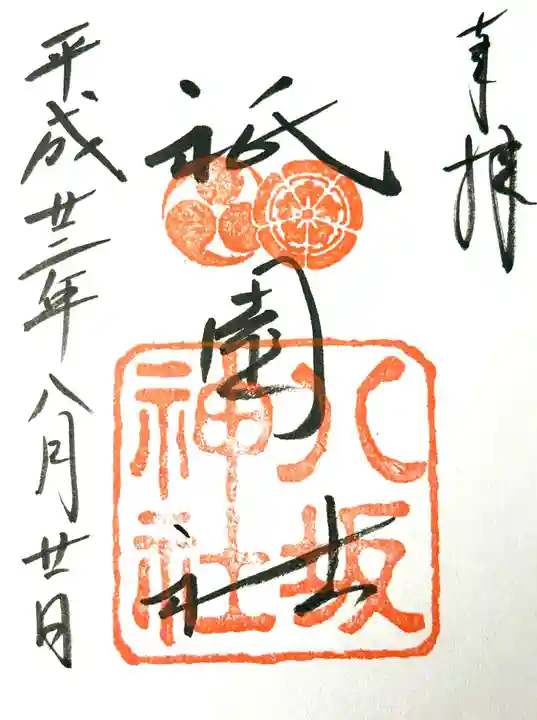 奉拝
祇園社
八坂
神社
平成廿二年八月廿日